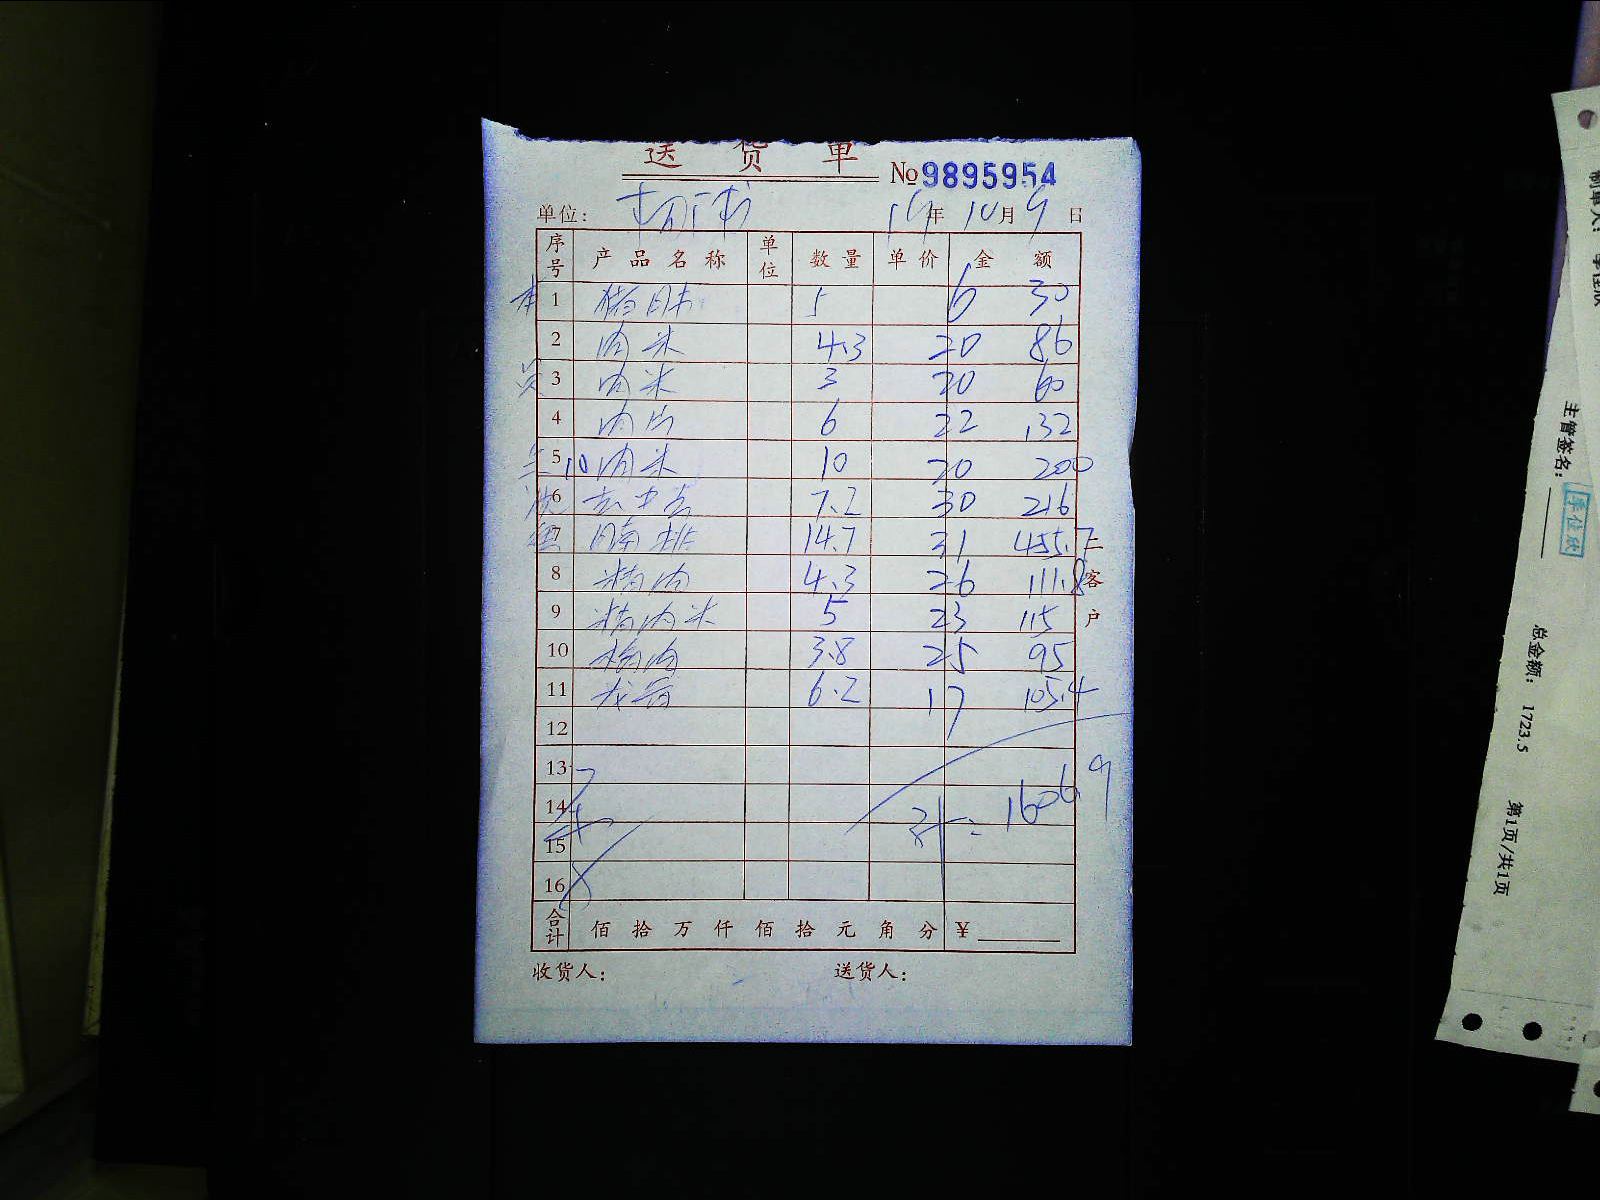 送货单
№9895954
单位: 19年10月9日
序号 产品名称 单位 数量 单价 金额
1 5 6 30
2 肉米 4.3 20 86
3 肉米 3 20 60
4 肉片 6 22 132
5 肉米 10 20 200
6 7.2 30 216
7 腩排 14.7 31 455.7
8 精肉 4.3 26 111.8
9 精肉米 5 23 115
10 梅肉 3.8 25 95
11 龙骨 6.2 17 105.4
12
13
14 计: 1606.9
15
16
合计 佰拾万仟佰拾元角分 ¥
收货人: 送货人:
三客户
制单人:
主管签名:
李位欣
总金额: 1723.5
第1页/共1页